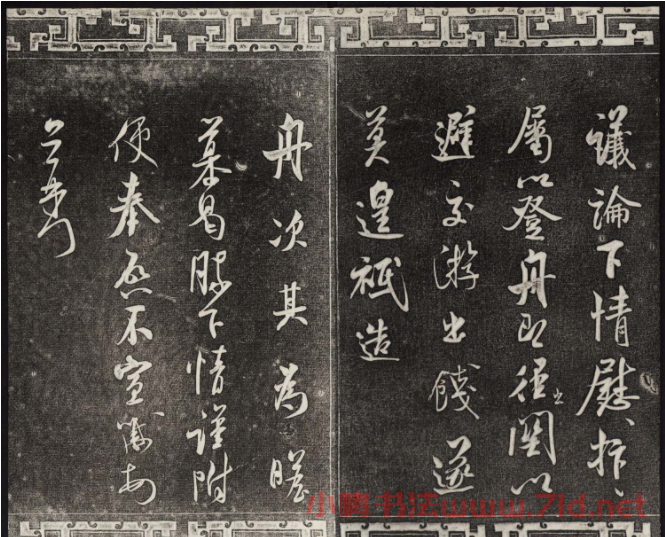 議論下情慰抃〻
屬以登舟即徑出關以
避交游出餞遂
莫遑祗造
舟次其為瞻
慕曷勝下情謹附
便奉啓不宣
书法www.7ld.net